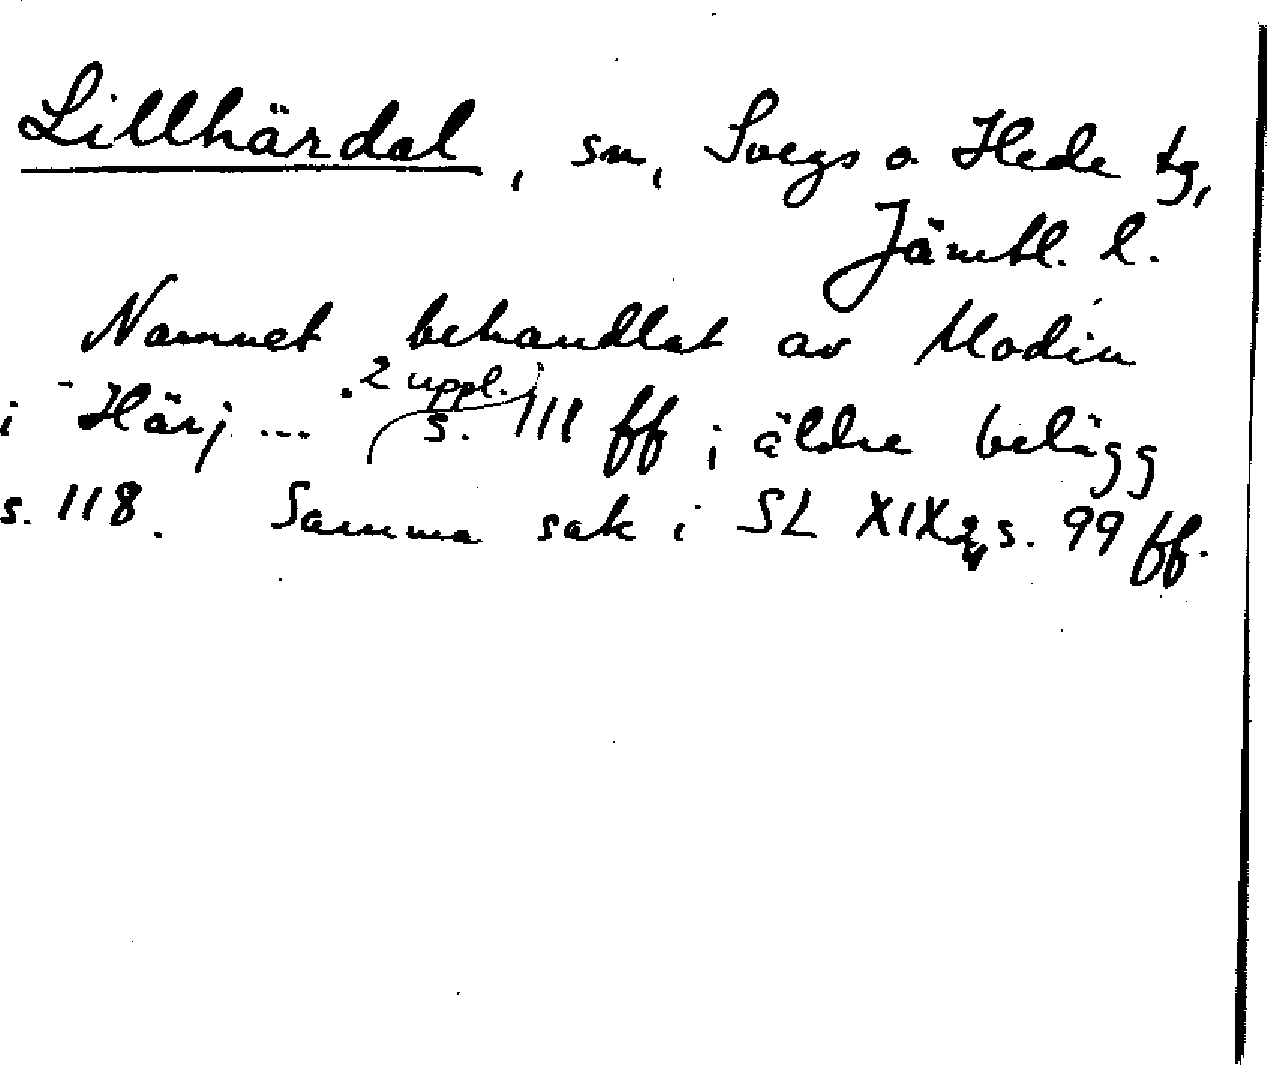 Lillhärdal, sn, Svegs o Hede tg,
Jämtl. l.
Namnet behandlat av Modin
i Härj... 2 uppl. s. 111 ff; äldre belägg
s. 118. Samma sak i SL XIX, s. 99 ff.